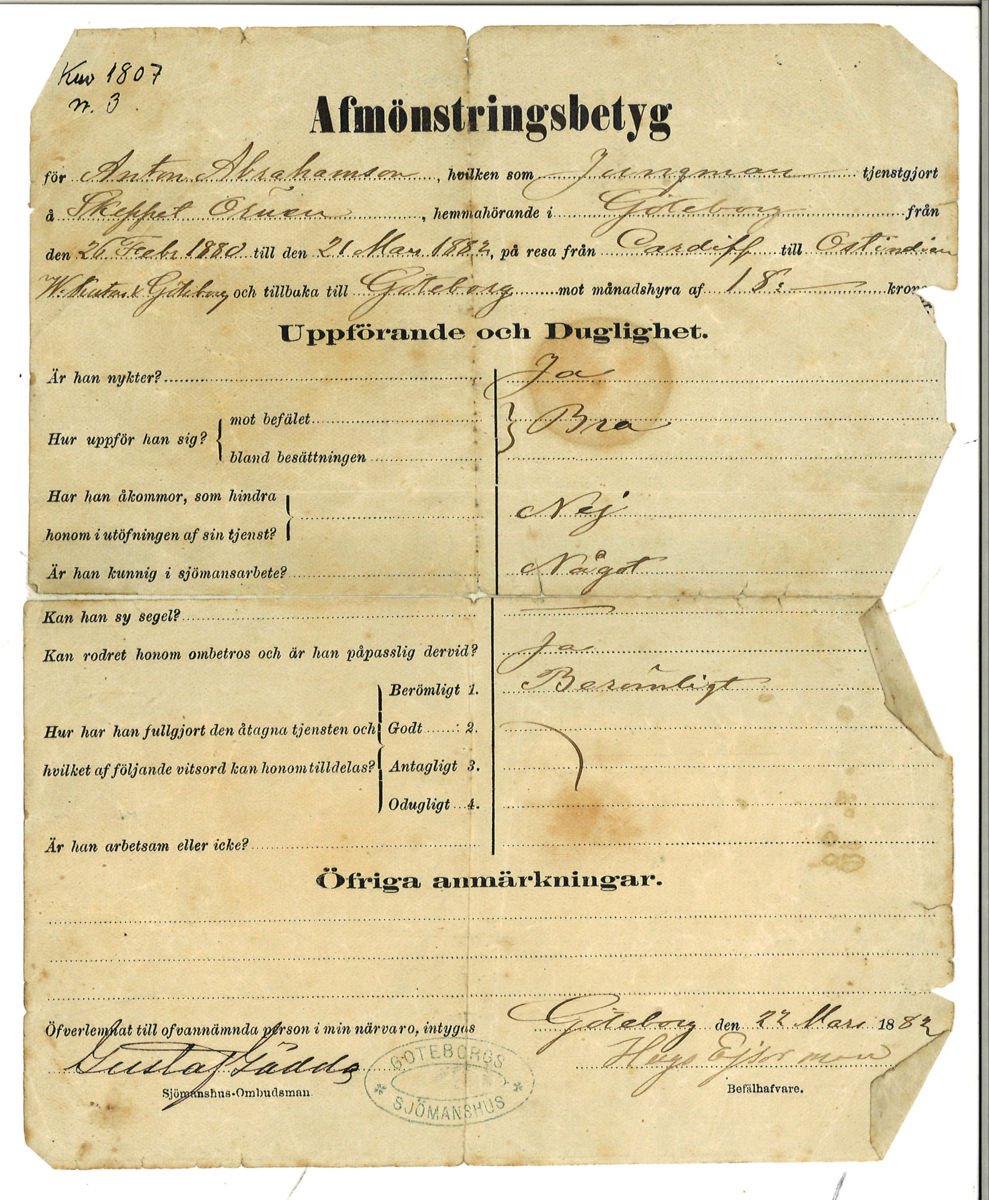 Kuv 1807
n. 3.
Afmönstringsbetyg
för Anton Abrahamson, hvilken som Jungman tjenstgjort
å Skeppet, hemmahörande i Göteborg från
den 26 Febr 1880 till den 21 Mars 1882, på resa från Cardiff till Ostindien
Göteborg och tillbaka till Göteborg mot månadshyra af 18: kronor.
Uppförande och Duglighet.
Är han nykter? Ja
Hur uppför han sig? mot befälet Bra
bland besättningen
Har han åkommor, som hindra
honom i utöfningen af sin tjenst? Nej
Är han kunnig i sjömansarbete? Något
Kan han sy segel? —
Kan rodret honom ombetros och är han påpasslig dervid? Ja
Berömligt 1. Berömligt
Hur har han fullgjort den åtagna tjensten och Godt 2.
hvilket af följande vitsord kan honom tilldelas? Antagligt 3.
Odugligt 4.
Är han arbetsam eller icke?
Öfriga anmärkningar.
Öfverlemnat till ofvannämnda person i min närvaro, intygas Göteborg den 22 Mars 1882
Gustaf Gädda
Sjömanshus-Ombudsman
GÖTEBORGS SJÖMANSHUS
Befälhafvare.